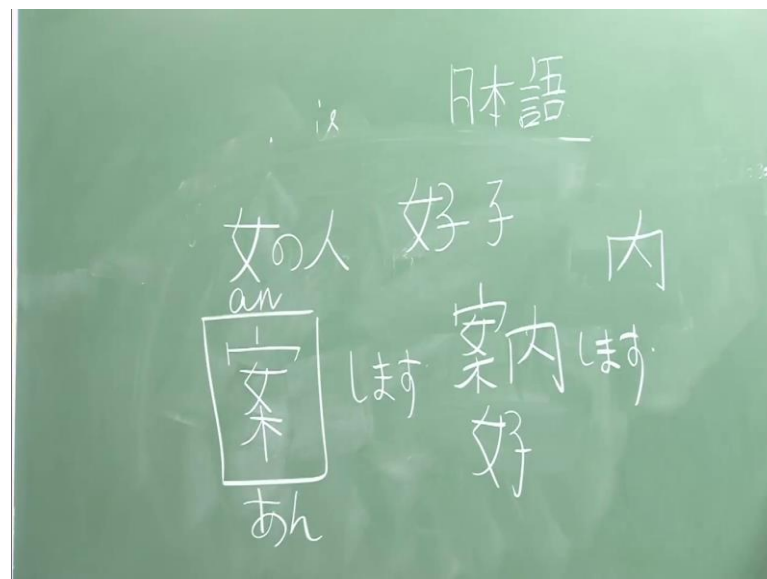 is 日本語
女の人 好子 内
an
案 します 案内します
好
あん